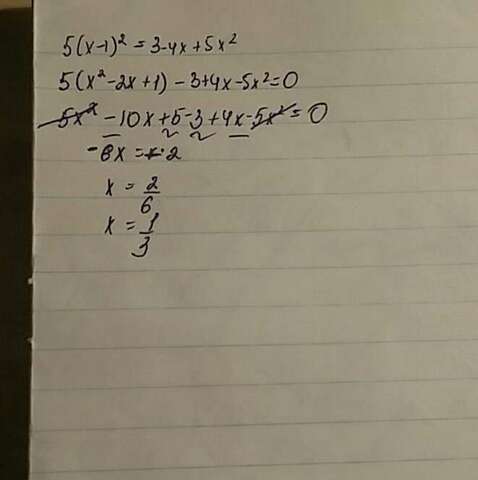 5(x-1)² = 3-4x+5x²
5(x²-2x+1) - 3+4x-5x²=0
5x² - 10x + 5 - 3 + 4x - 5x² = 0
-6x = -2
x = 2/6
x = 1/3